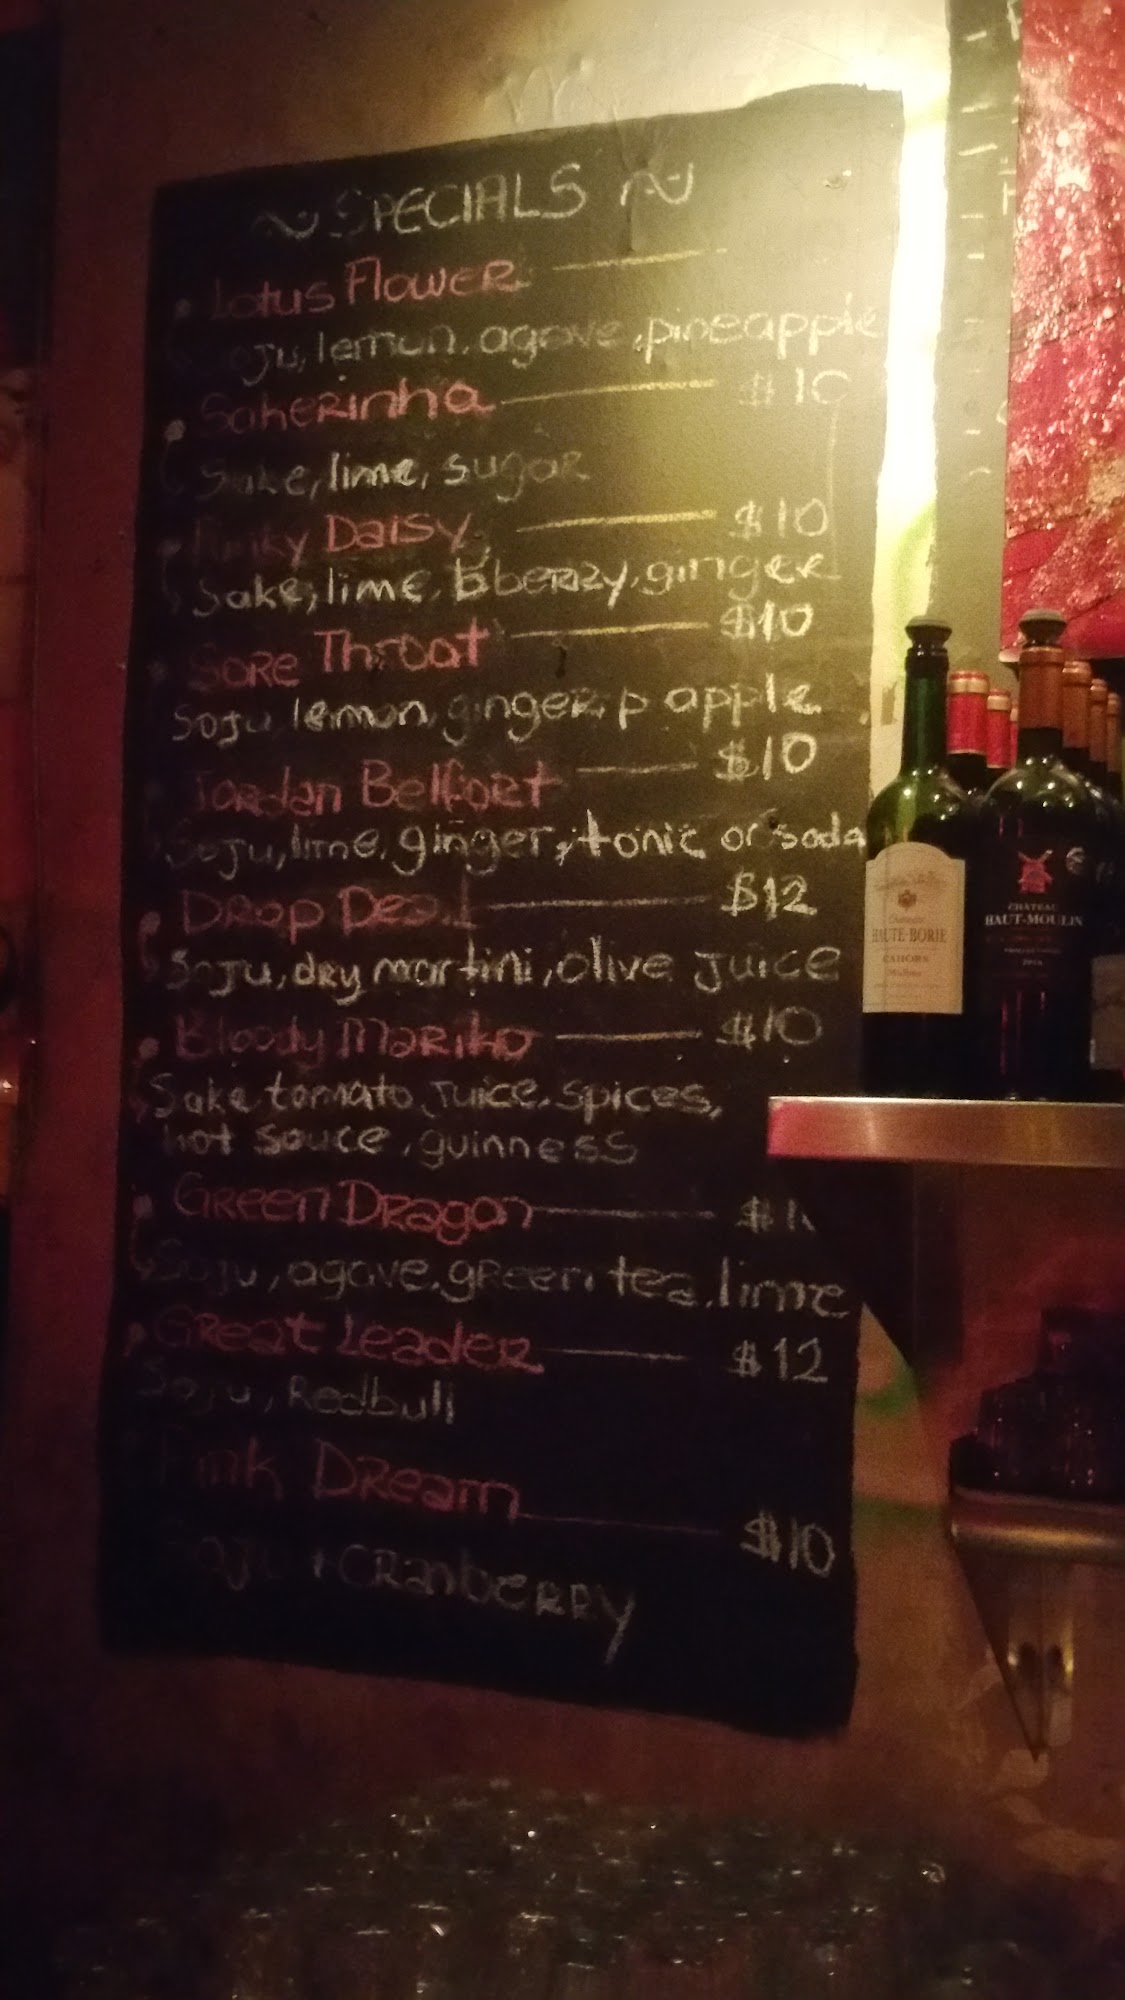 ~ SPECIALS ~
Lotus Flower
Soju, lemon, agave, pineapple
Sakerinha $10
Sake, lime, sugar
Daisy $10
Sake, lime, B berry, ginger
Sore Throat $10
Soju, lemon, ginger, p apple
Jordan Belfort $10
Soju, lime, ginger, tonic or soda
Drop Dead $12
Soju, dry martini, olive juice
Bloody Mariko $10
Sake, tomato, juice, spices,
hot sauce, guinness
Green Dragon
Soju, agave, green tea, lime
Great Leader $12
Soju, Redbull
Pink Dream $10
Soju + Cranberry
HAUTE-BORIE
CAHORS
CHATEAU
HAUT-MOULIN